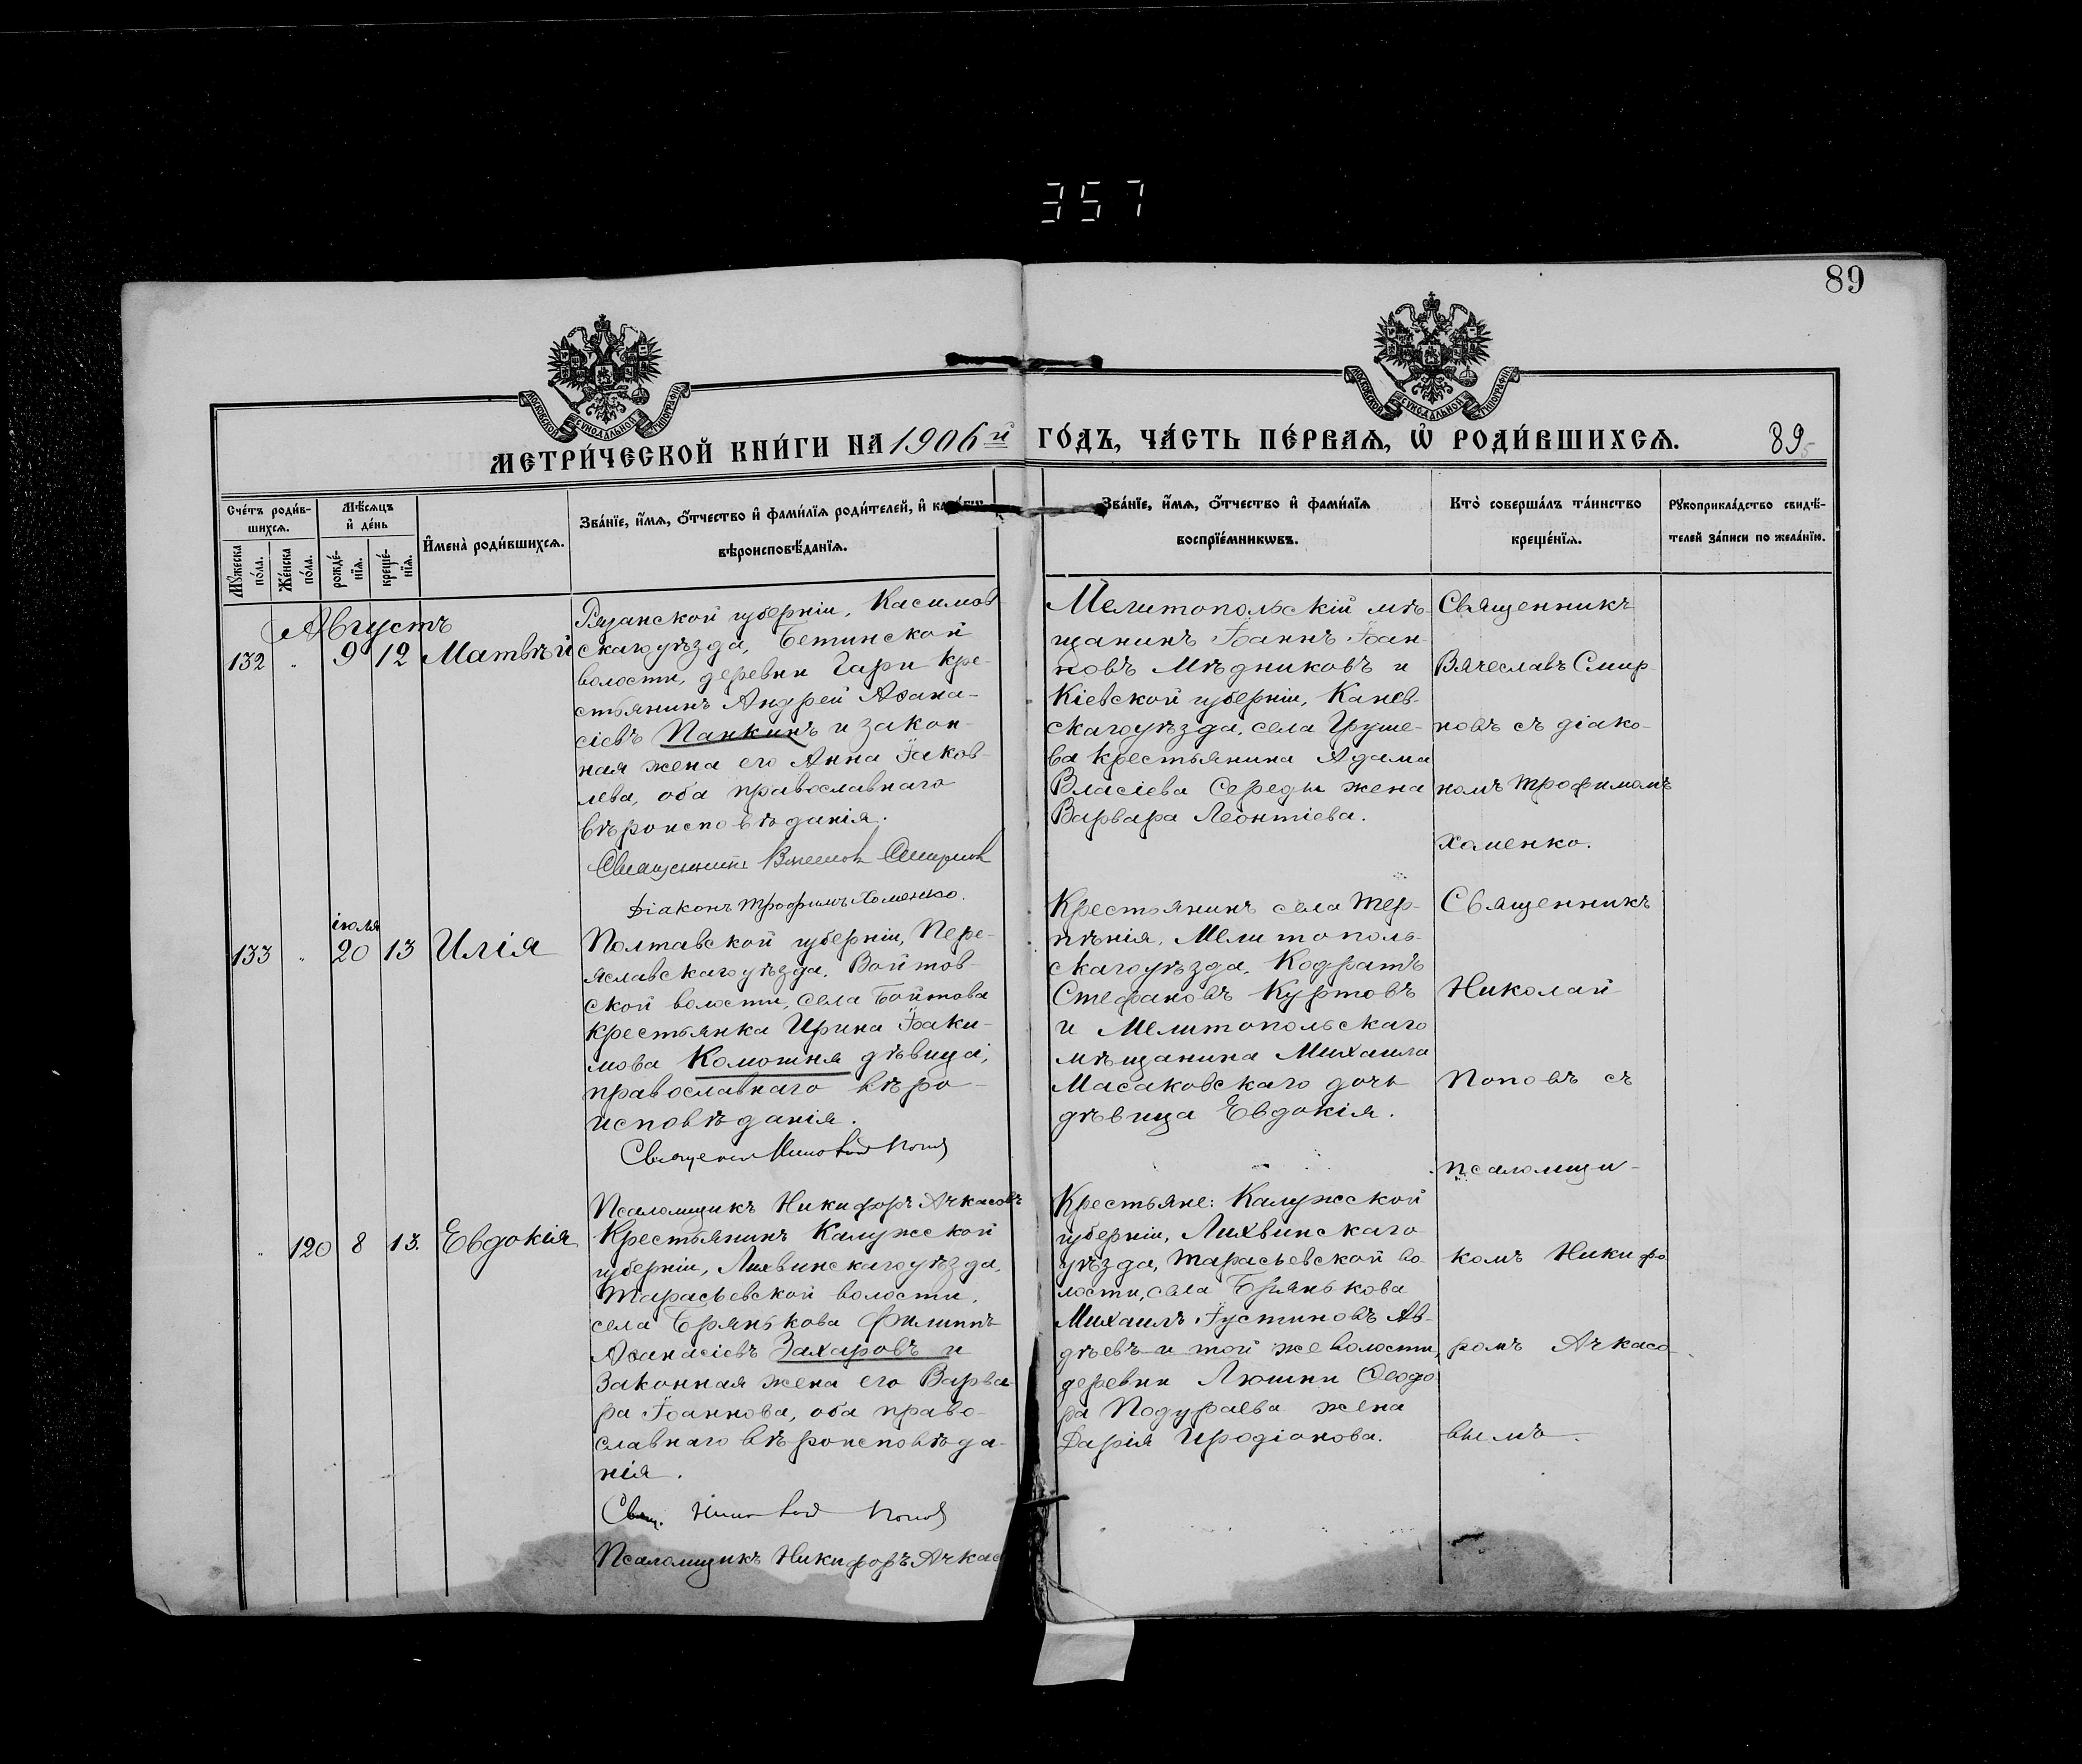 357
89
МОСКОВСКОЙ СѴНОДАЛЬНОЙ ТИПОГРАФІИ
МОСКОВСКОЙ СѴНОДАЛЬНОЙ ТИПОГРАФІИ
МЕТРИ́ЧЕСКОЙ КНИ́ГИ НА 1906й ГО́ДЪ, ЧА́СТЬ ПЕ́РВАѦ, Ѿ РОДИ́ВШИХСѦ.
89
Сче́тъ роди́в-
шихсѧ.
Мꙋ́жеска
по́ла.
Же́нска
по́ла.
Мѣ́сѧцъ
и҆ де́нь
рожде́-
нїѧ.
креще́-
нїѧ.
И҆мена̀ роди́вшихсѧ.
Зва́нїе, и҆́мѧ, ѻ҆́тчество и҆ фами́лїѧ роди́телей, и҆
вѣроисповѣ́данїѧ.
Зва́нїе, и҆́мѧ, ѻ҆́тчество и҆ фами́лїѧ
воспрїе́мникѡвъ.
Кто̀ соверша́лъ та́инство
креще́нїѧ.
Рꙋкоприкла́дство свидѣ́-
телей за́писи по жела́нїю.
Августъ
132 " 9 12 Матвѣй
Рязанской губерніи, Касимов
скаго уѣзда, Бетинской
волости, деревни Гари кре-
стьянинъ Андрей Аѳана-
сіевъ Панкинъ и закон-
ная жена его Анна Іаков-
лева, оба православнаго
вѣроисповѣданія.
Священникъ Вячеславъ Смирнов
Діаконъ Трофимъ Хоменко.
Мелитопольскій мѣ-
щанинъ Іоаннъ Іоан-
новъ Мѣдниковъ и
Кіевской губерніи, Канев-
скаго уѣзда, села Груше-
ва крестьянина Адама
Власіева Середы жена
Варвара Леонтіева.
Священникъ
Вячеславъ Смир-
новъ съ діако-
номъ Трофимомъ
Хоменко.
іюля
133 " 20 13 Илія
Полтавской губерніи, Пере-
яславскаго уѣзда, Войтов-
ской волости, села Войтова
крестьянка Ирина Іоаки-
мова Комошня дѣвица,
православнаго вѣро-
исповѣданія.
Священник Николай Попов
Псаломщикъ Никифоръ Ачкасовъ
Крестьянинъ села Тер-
пѣнія, Мелитополь-
скаго уѣзда, Кодратъ
Стефановъ Куртовъ
и Мелитопольскаго
мѣщанина Михаила
Масаковскаго дочь
дѣвица Евдокія.
Священникъ
Николай
Поповъ съ
псаломщи-
комъ Никифо
ромъ Ачкасо-
вымъ.
" 120 8 13. Евдокія
Крестьянинъ Калужской
губерніи, Лихвинскаго уѣзда,
Тарасьевской волости,
села Брянькова Филиппъ
Аѳанасіевъ Захаровъ и
законная жена его Варва-
ра Іоаннова, оба право-
славнаго вѣроисповѣда-
нія.
Свящ. Николай Попов
Псаломщикъ Никифоръ Ачкас
Крестьяне: Калужской
губерніи, Лихвинскаго
уѣзда, Тарасьевской во-
лости, села Брянькова
Михаилъ Іустиновъ Ав-
дѣевъ и той же волости,
деревни Люшни Ѳеодо-
ра Подураева жена
Дарія Иродіонова.